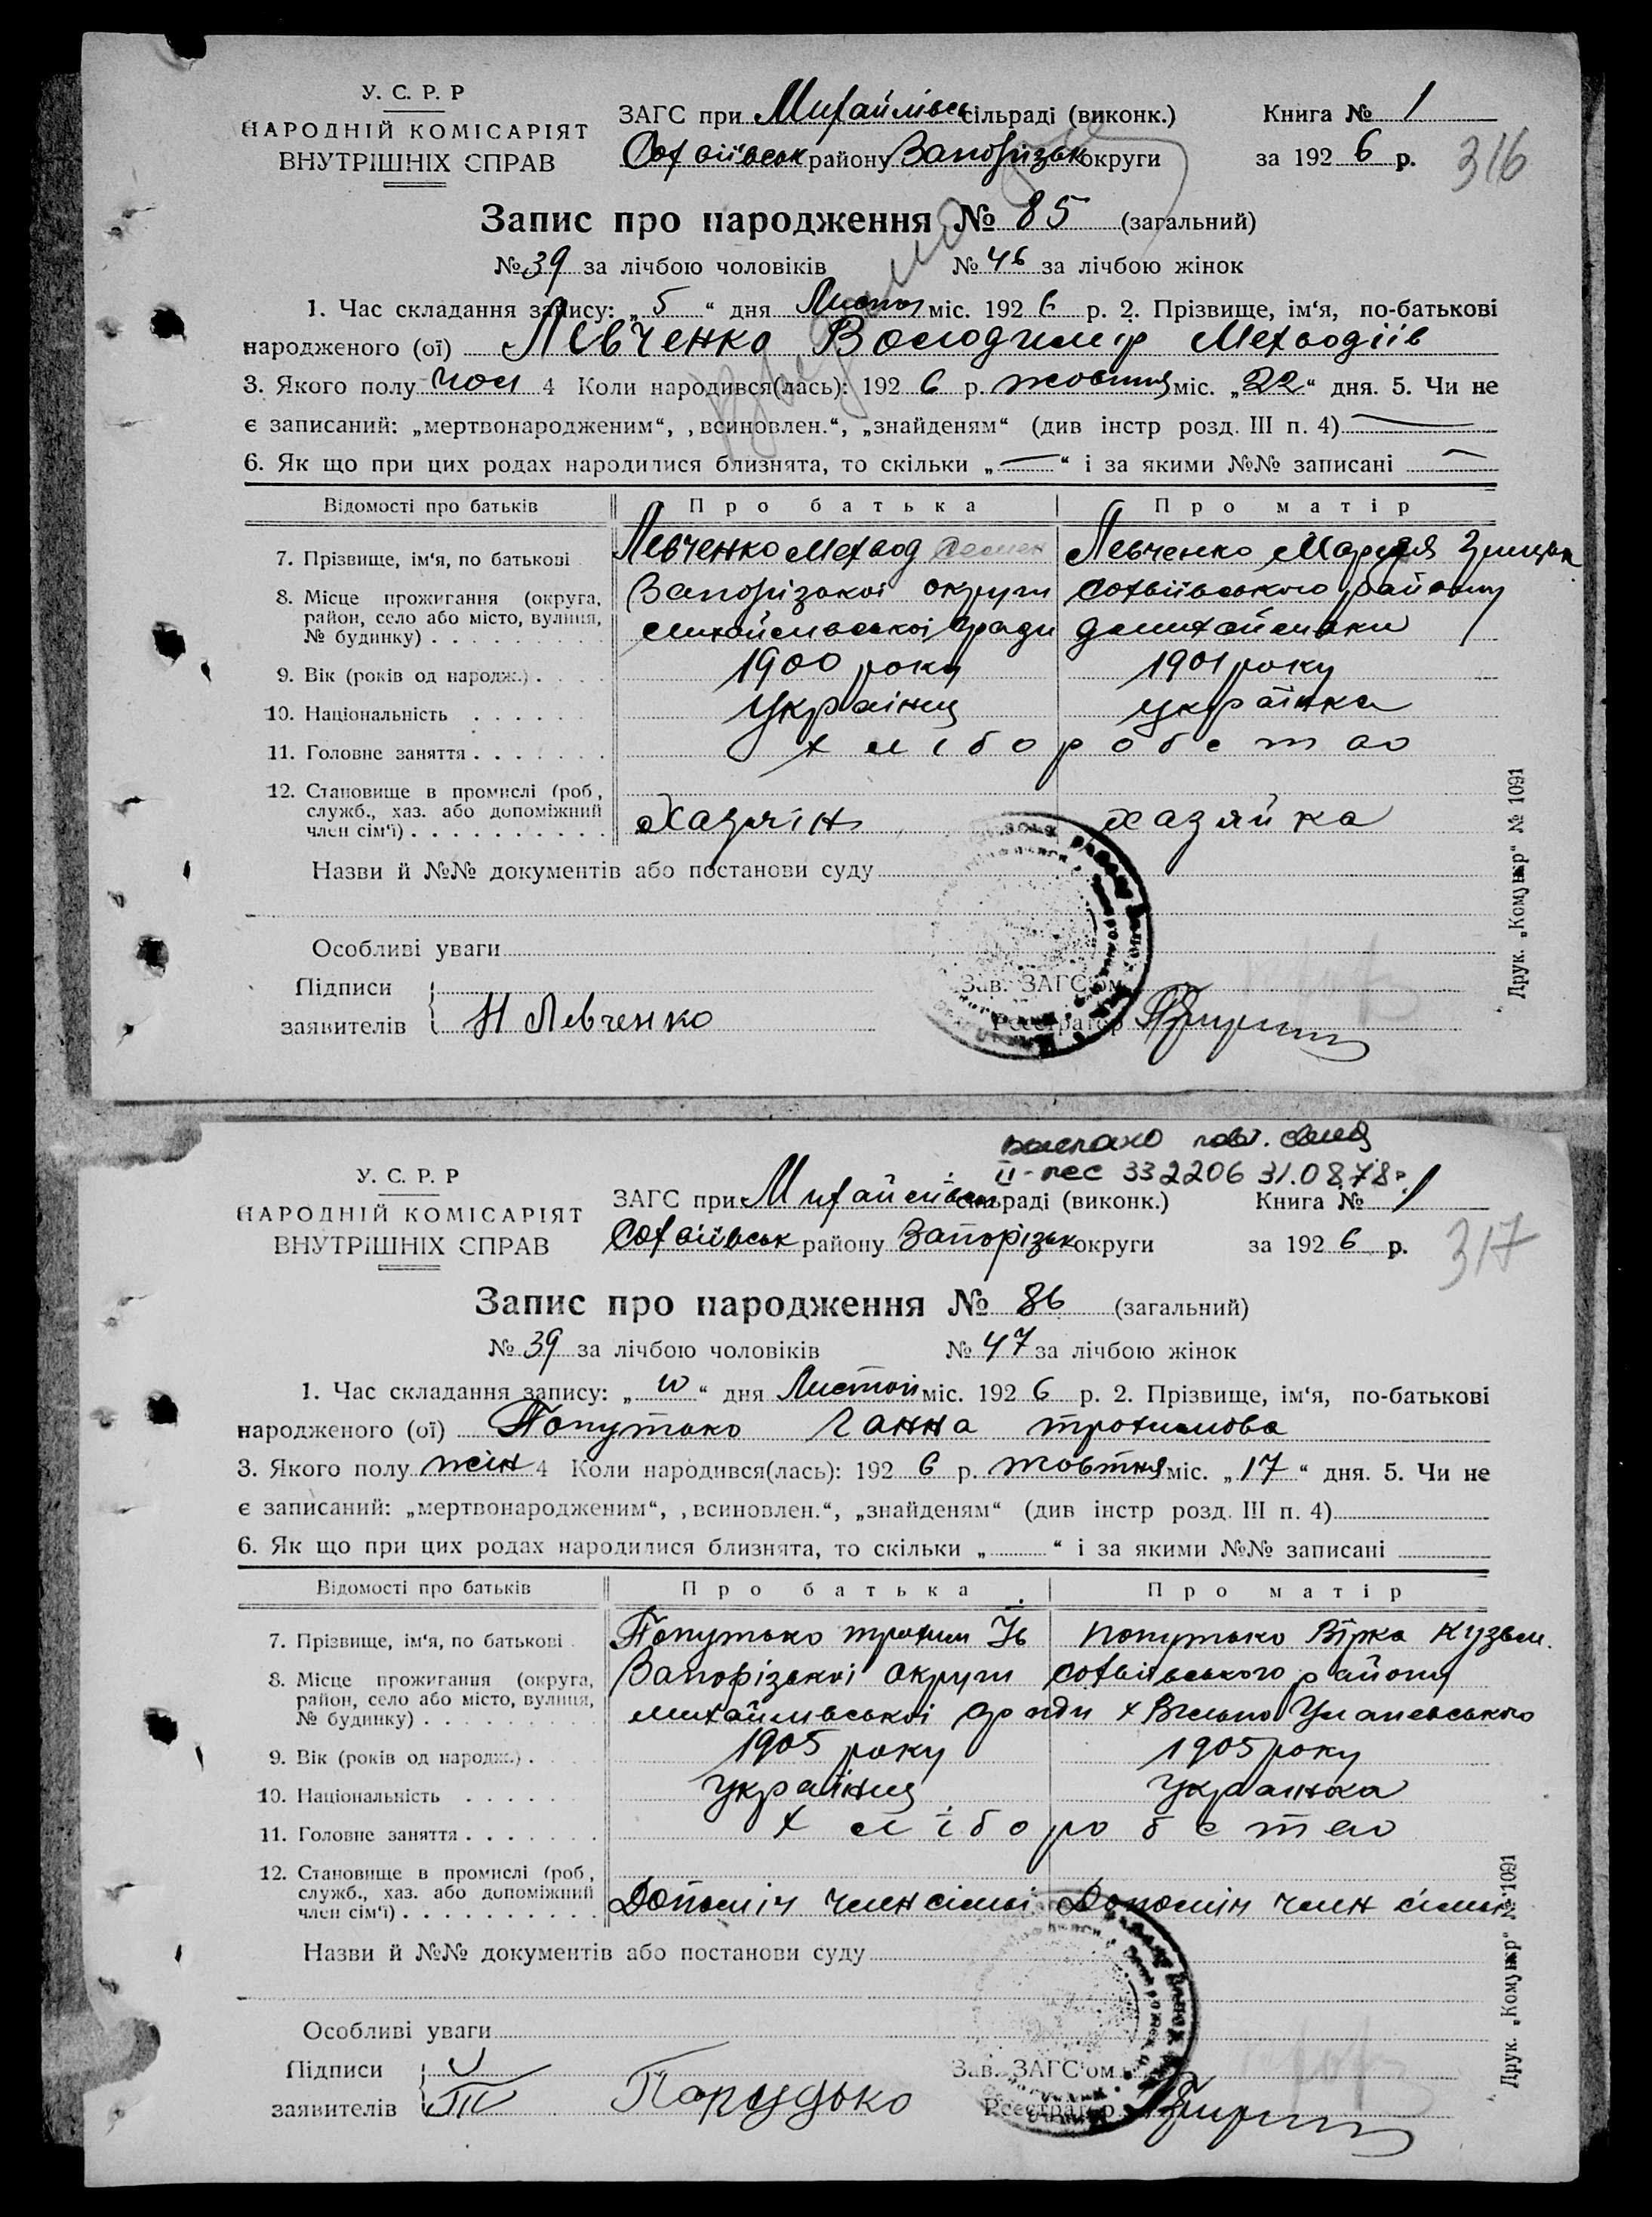 У. С. Р. Р
НАРОДНІЙ КОМІСАРІЯТ
ВНУТРІШНІХ СПРАВ
ЗАГС при Михайлівсь сільраді (виконк.)
Софіївськ району Запорізьк округи
Книга № 1
за 192 6 р.
316
Запис про народження № 85 (загальний)
№ 39 за лічбою чоловіків № 46 за лічбою жінок
1. Час складання запису: „ 5 “ дня Листоп міс. 192 6 р. 2. Прізвище, ім‘я, по-батькові
народженого (ої) Левченко Володимір Мехводіїв
3. Якого полу чол 4 Коли народився(лась): 192 6 р. жовтня міс. „ 22 “ дня. 5. Чи не
є записаний: „мертвонародженим“, ‚всиновлен.“, „знайденям“ (див інстр розд. III п. 4)
6. Як що при цих родах народилися близнята, то скільки „ — “ і за якими №№ записані —
Відомості про батьків Про батька Про матір
7. Прізвище, ім‘я, по батькові Левченко Мехвод Семен Левченко Маруся Грицьк
8. Місце проживання (округа, район, село або місто, вулиця, № будинку) Запорізької округи Софвіївського району
Михайлівської сради д Михайлівки
9. Вік (років од народж.) 1900 року 1901 року
10. Національність українець українка
11. Головне заняття хліборобство
12. Становище в промислі (роб, служб., хаз. або допоміжний член сім‘ї) Хазяїн хазяйка
Назви й №№ документів або постанови суду
Особливі уваги
Підписи
заявителів Н Левченко
Зав. ЗАГС‘ом
Реєстратор
Друк. „Комунар“ № 1091
повт. свид
II-пес 332206 31.08.78г.
У. С. Р. Р
НАРОДНІЙ КОМІСАРІЯТ
ВНУТРІШНІХ СПРАВ
ЗАГС при Михайлівськ сільраді (виконк.)
Софвіївськ району Запорізьк округи
Книга № 1
за 192 6 р.
317
Запис про народження № 86 (загальний)
№ 39 за лічбою чоловіків № 47 за лічбою жінок
1. Час складання запису: „ 10 “ дня Листоп міс. 192 6 р. 2. Прізвище, ім‘я, по-батькові
народженого (ої) Попутько Ганна трохимова
3. Якого полу жін 4 Коли народився(лась): 192 6 р. жовтня міс. „ 17 “ дня. 5. Чи не
є записаний: „мертвонародженим“, ‚всиновлен.“, „знайденям“ (див інстр розд. III п. 4)
6. Як що при цих родах народилися близнята, то скільки „ “ і за якими №№ записані
Відомості про батьків Про батька Про матір
7. Прізвище, ім‘я, по батькові Попутько трохим Ів попутько Вірка Кузьм.
8. Місце проживання (округа, район, село або місто, вулиця, № будинку) Запорізької округи Софвіївського району
михайлівської сради х Вільно Уланівського
9. Вік (років од народж.) 1905 року 1905 року
10. Національність українец украінка
11. Головне заняття хліборобство
12. Становище в промислі (роб, служб., хаз. або допоміжний член сім‘ї) Допоміч член сімьі Допоміч член сімьі
Назви й №№ документів або постанови суду
Особливі уваги
Підписи
заявителів Попудько
Зав. ЗАГС‘ом
Реєстратор
Друк. „Комунар“ № 1091